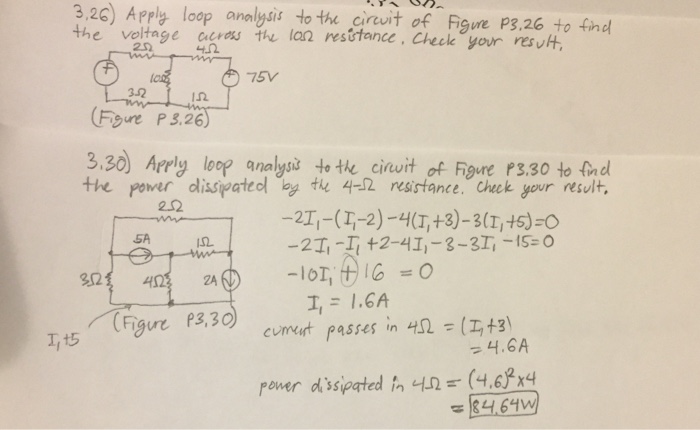 3,26) Apply loop analysis to the circuit of Figure P3,26 to find
the voltage across the 10Ω resistance. Check your result,
2Ω 4Ω
+ 10Ω + 75V
3Ω 1Ω
(Figure P 3.26)
3.30) Apply loop analysis to the circuit of Figure P3.30 to find
the power dissipated by the 4-Ω resistance. Check your result,
2Ω
5A 1Ω
3Ω 4Ω 2A
(Figure P3,30)
I₁+5
-2I₁-(I₁-2)-4(I₁+3)-3(I₁+5)=0
-2I₁-I₁+2-4I₁-8-3I₁-15=0
-10I₁+16 = 0
I₁ = 1.6A
current passes in 4Ω = (I₁+3)
= 4.6A
power dissipated in 4Ω = (4,6)²x4
= 84.64W